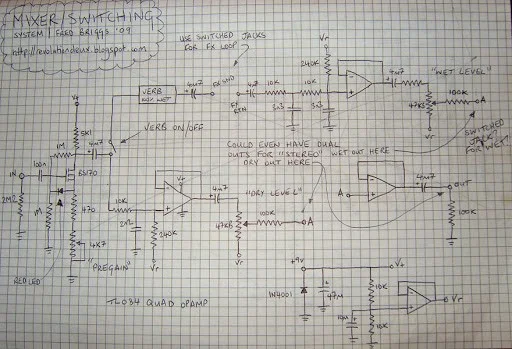 MIXER/SWITCHING
SYSTEM / FRED BRIGGS '09
http://revolutiondeux.blogspot.com
USE SWITCHED
JACKS
FOR FX LOOP
Vr
240K
VERB
4µ7
FX SND
4µ7
10K
10K
FX
RTN
3n3
3n3
4µ7
"WET LEVEL"
47KB
100K
A
Vr
SWITCHED
JACK?
FOR WET?
V+
5K1
1M
4µ7
VERB ON/OFF
COULD EVEN HAVE DUAL
OUTS FOR "STEREO"
WET OUT HERE
DRY OUT HERE
IN
100n
BS170
2M2
1M
A
470
4K7
"PREGAIN"
RED LED
10K
2n2
240K
Vr
4µ7
"DRY LEVEL"
47KB
100K
A
Vr
A
4µ7
OUT
100K
TL034 QUAD OPAMP
+9v
V+
1N4001
47µ
10K
10µ
10K
Vr